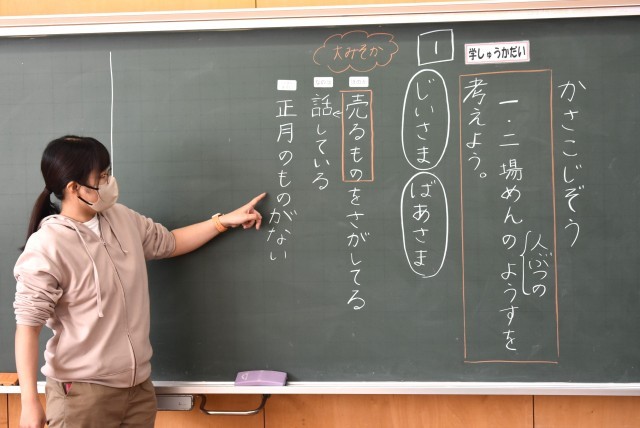 かさこじぞう
学しゅうかだい
一・二場めんのようすを
人ぶつの
考えよう。
1
じいさま ばあさま
大みそか
売るものをさがしてる
話している
正月のものがない